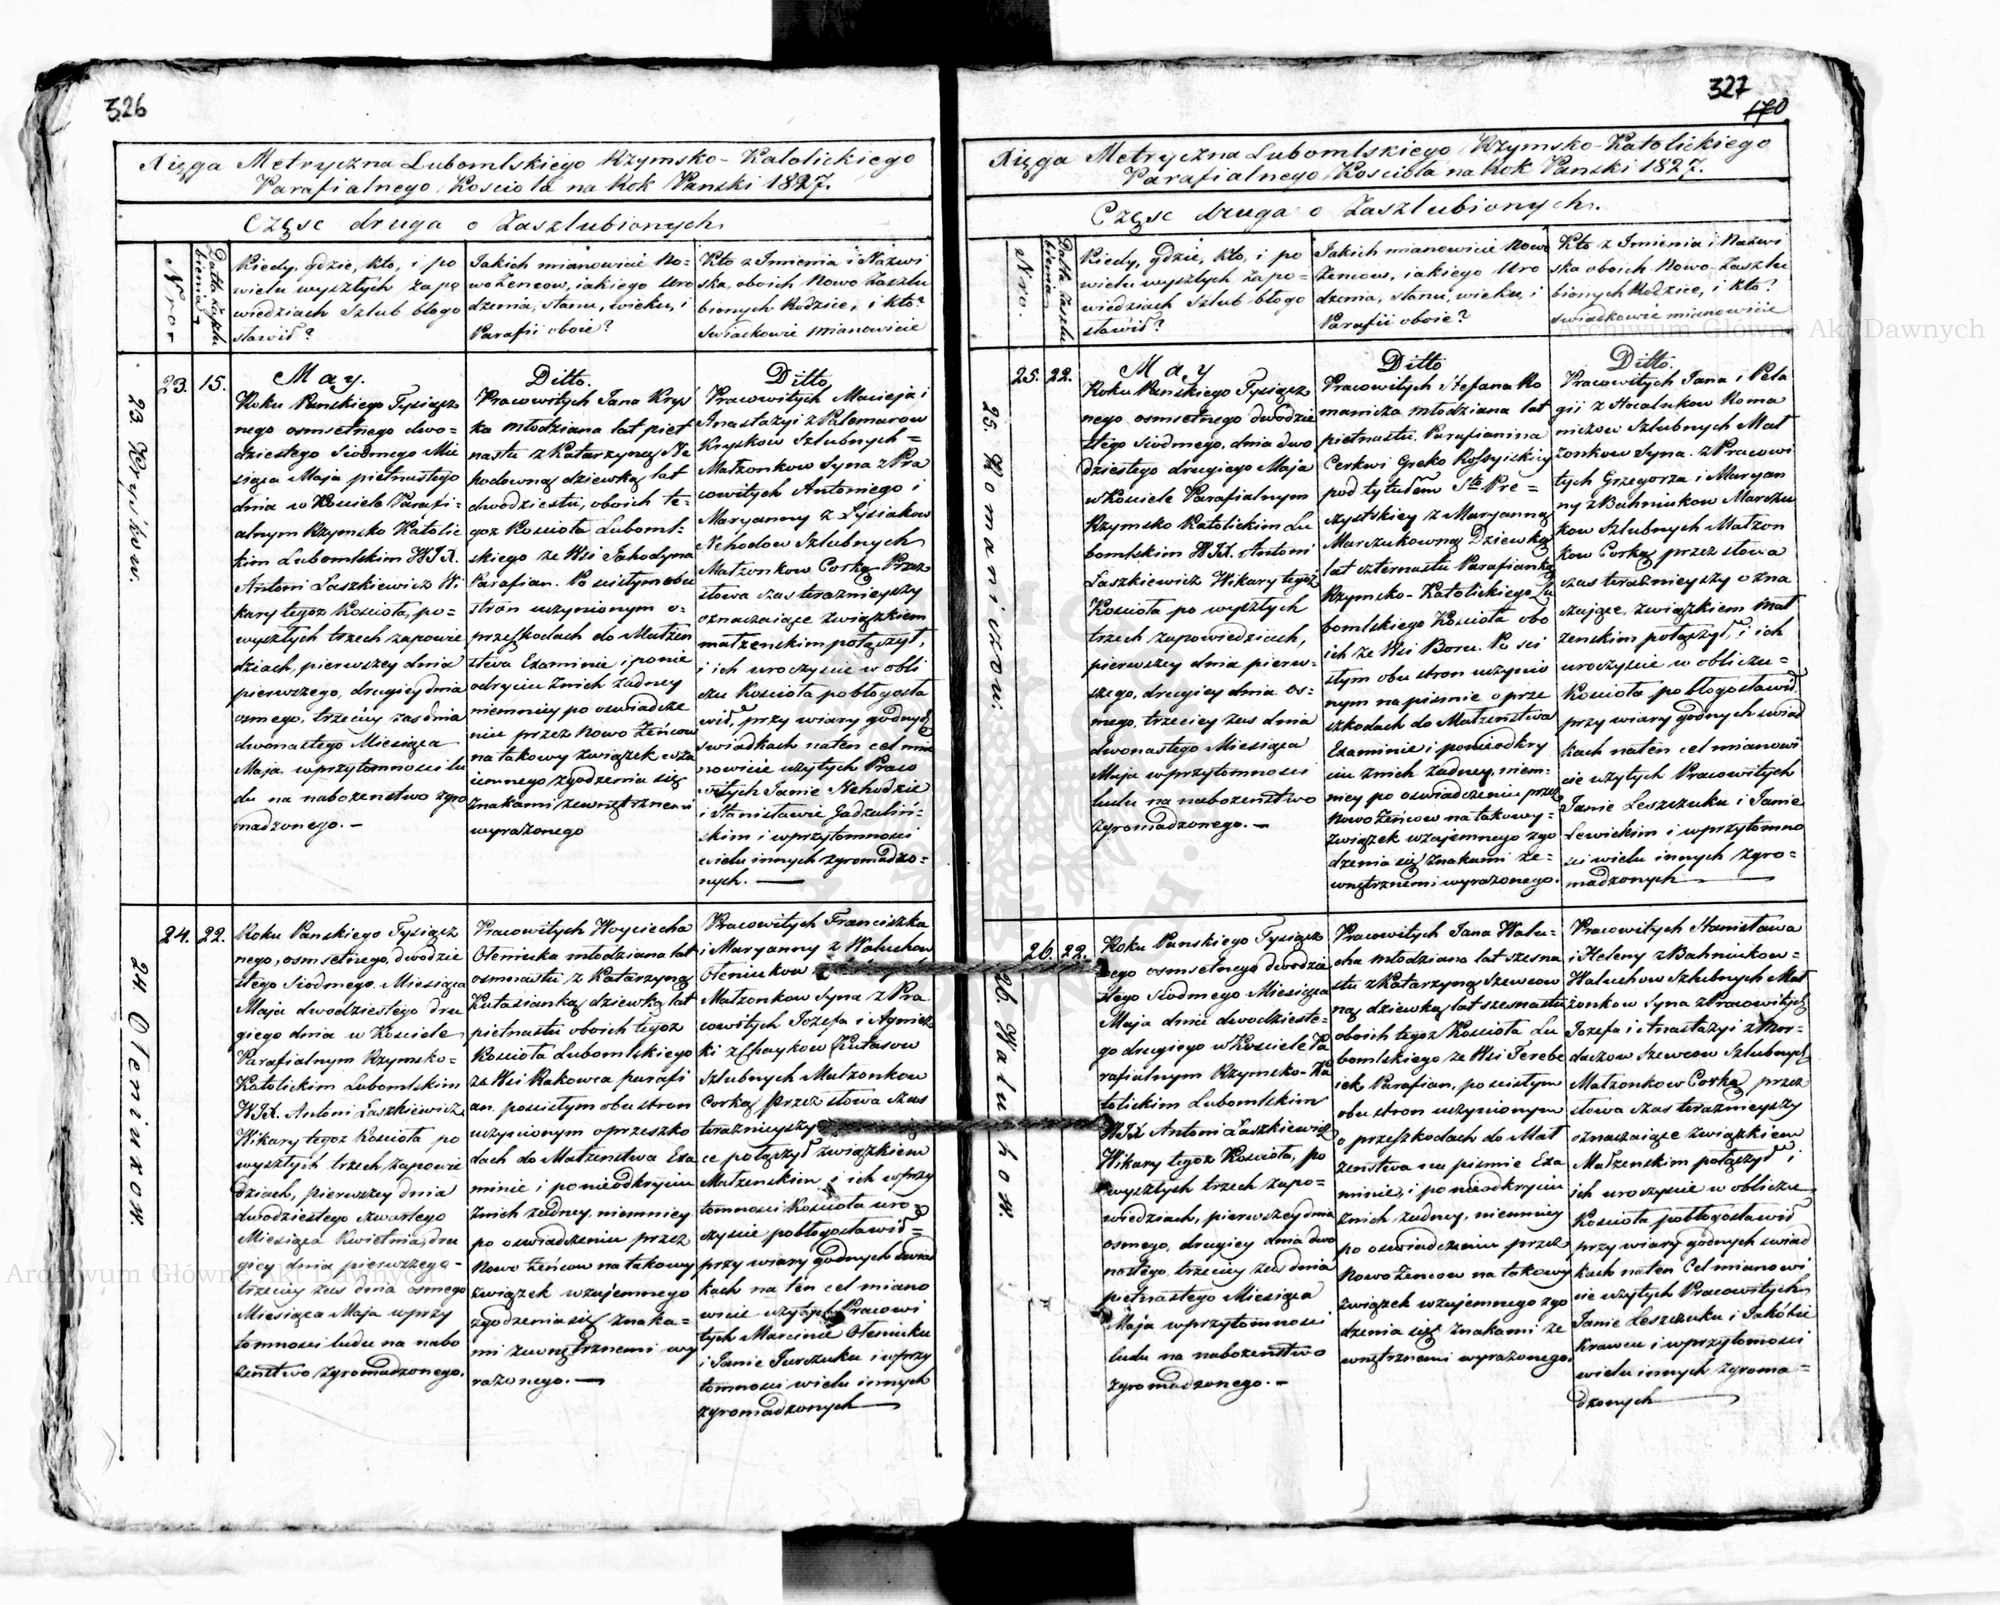 326
Xięga Metryczna Lubomlskiego Rzymsko-Katolickiego
Parafialnego Kosciola na Rok Panski 1827.
Częsc druga o Zaszlubionych
Nro
Datta Zaszlu
bienia
Kiedy, gdzie, kto, i po
wielu wyszłych zapo
wiedziach Szlub błogo
sławił?
Jakich mianowicie No=
wo Żencow, iakiego Uro
dzenia, stanu, wieku, i
Parafii oboie?
Kto z Imienia i Nazwi
ska, oboich Nowo Zaszlu
bionych Rodzice, i kto?
Swiadkowie mianowicie
23.
15.
23 Kryskow.
May.
Roku Panskiego Tysiącz
nego osmsetnego dwo=
dziestego Siodmego Mie
siąca Maja pietnastego
dnia w Kosciele Parafi=
alnym Rzymsko Katolic
kim Lubomlskim WJX.
Antoni Laszkiewicz Wi
kary tegoz Kosciola, po=
wyszłych trzech zapowie
dziach, pierwszey dnia
pierwszego, drugiey dnia
osmego, trzeciey zas dnia
dwonastego Miesiąca
Maja w przytomnosci lu
du na nabozenstwo zgro
madzonego. —
Ditto.
Pracowitych Jana Krys
ka młodziana lat pięt
nastu z Katarzyną Ne
hodowną dziewką lat
dwodziestu, oboich te=
goz Kosciola Luboml=
skiego ze Wsi Jahodyna
Parafian. Po scistym obu
stron uczynionym o=
przeszkodach do Małżen
stwa Examinie i ponie
odkryciu znich żadney
niemniey po oswiadcze
niu przez Nowo Żeńcow
na takowy związek wza
iemnego zgodzenia się
znakami zewnętrznemi
wyrażonego
Ditto
Pracowitych Macieja i
Anastazyi z Palamarow
Kryskow Szlubnych=
Małzonkow Syna z Pra
cowitych Antoniego i
Maryanny z Łysiakow
Nehodow Szlubnych
Małzonkow Corką Przez
słowa czas terazmieyszy
oznaczaiące związkiem
małzenskim połączył,
i ich uroczyscie w obli
czu Kosciola pobłogosła
wił, przy wiary godnych
Swiadkach naten cel mia
nowicie użytych Praco
witych Janie Nehodzie
i Stanisławie Gadzaliń=
skim i w przytomnosci
wielu innych zgromadzo=
nych. —
24.
22.
24 Oleniukow.
Roku Panskiego Tysiącz
nego, osmsetnego, dwodzie
stego Siodmego. Miesiąca
Maja dwodziestego dru
giego dnia w Kosciele
Parafialnym Rzymsko=
Katolickim Lubomlskim
WJX. Antoni Laszkiewicz
Wikary tegoz Kosciola po
wyszłych trzech zapowie
dziach, pierwszey dnia
dwodziestego czwartego
Miesiąca Kwietnia, dru
giey dnia pierwszego=
trzeciey zas dnia osmego
Miesiąca Maja w przy
tomnosci ludu na nabo
zenstwo zgromadzonego.
Pracowitych Woyciecha
Oleniuka młodziana lat
osmnastu z Katarzyną
Kutasianką dziewką lat
pietnastu oboich tegoz
Kosciola Lubomlskiego
ze Wsi Rakowca parafi
an. po scistym obu stron
uczynionym o przeszko
dach do Małzenstwa Exa
minie i ponieodkryciu
znich żadney, niemniey
po oswiadczeniu przez
Nowo Żeńcow na takowy
związek wzajemnego
zgodzenia się znaka=
mi zewnętrznemi wy
rażonego. —
Pracowitych Franciszka
i Maryanny z Waluchow
Oleniukow
Małzonkow Syna z Pra
cowitych Jozefa i Agniesz
ki z Chaykow Kutasow
Szlubnych Małzonkow
Corką przez słowa czas
terazmieyszy
ce połączył związkiem
Małzenskim i ich w przy
tomnosci Kosciola uro
czyscie pobłogosławił=
przy wiary godnych Swiad
kach na ten cel miano
wicie użytych Pracowi
tych Marcinie Oleniuku
i Janie Jurczuku i w przy
tomnosci wielu innych
zgromadzonych
327
170
Xięga Metryczna Lubomlskiego Rzymsko-Katolickiego
Parafialnego Kosciola na Rok Panski 1827.
Częsc druga o Zaszlubionych.
Nro.
Datta Zaszlu
bienia
Kiedy, gdzie, kto, i po
wielu wyszłych zapo=
wiedziach Szlub błogo
sławił?
Jakich mianowicie Nowo
Żencow, iakiego Uro
dzenia, stanu, wieku, i
Parafii oboie?
Kto z Imienia i Nazwi
ska oboich Nowo-Zaszlu
bionych Rodzice, i kto?
Swiadkowie mianowicie
25.
22.
25. Romanikow.
May
Roku Panskiego Tysiącz
nego osmsetnego dwodzie
stego Siodmego, dnia dwo
dziestego drugiego Maja
w Kosciele Parafialnym
Rzymsko Katolickim Lu
bomlskim WJX. Antoni
Laszkiewicz Wikary tegoż
Kosciola po wyszłych
trzech zapowiedziach,
pierwszey dnia pierw=
szego, drugiey dnia os=
mego, trzeciey zas dnia
dwonastego Miesiąca
Maja w przytomnosci
ludu na nabozenstwo
zgromadzonego. —
Ditto
Pracowitych Stefana Ro
manicza młodziana lat
pietnastu, Parafianina
Cerkwi Greko Rossyiskiey
pod tytułem Sto Pre=
czystskiey z Maryanną
Marczukowną Dziewką
lat czternastu Parafianką
Rzymsko-Katolickiego Lu
bomlskiego Kosciola obo
ich ze Wsi Boru. Po sci
stym obu stron uczynio
nym na pismie o prze
szkodach do Małzenstwa
Examinie i ponieodkry
ciu znich żadney, niem=
niey po oswiadczeniu przez
Nowo Żeńcow na takowy=
związek wzajemnego zgo
dzenia się znakami ze=
wnętrznemi wyrażonego.
Ditto.
Pracowitych Jana i Pela
gii z Hocalukow Roma
niczow Szlubnych Mał
zonkow Syna. z Pracowi
tych Grzegorza i Maryan
ny z Bahniukow Marczu
kow Szlubnych Małzon
kow Corką przez słowa
czas terazmieyszy ozna
czające, związkiem Mał
zenskim połączył, i ich
uroczyscie w obliczu=
Kosciola pobłogosławił
przy wiary godnych swiad
kach na ten cel mianowi
cie użytych Pracowitych
Janie Leszczuku i Janie
Lewickim i w przytomno
sci wielu innych zgro=
madzonych
26.
22.
26 Waluhow.
Roku Panskiego Tysiącz
nego osmsetnego dwodzie
stego Siodmego Miesiąca
Maja dnia dwodzieste=
go drugiego w Kosciele Pa
rafialnym Rzymsko-Ka
tolickim Lubomlskim
WJX Antoni Laszkiewicz
Wikary tegoz Kosciola, po
wyszłych trzech zapo=
wiedziach, pierwszey dnia
osmego, drugiey dnia dwo
nastego, trzeciey zas dnia
pietnastego Miesiąca
Maja w przytomnosci
ludu na nabozenstwo
zgromadzonego. —
Pracowitych Jana Walu=
cha młodziana lat szesna
stu z Katarzyną Szewcow
ną dziewką lat szesnastu
oboich tegoz Kosciola Lu
bomlskiego ze Wsi Terebe
iek Parafian, po scistym
obu stron uczynionym
o przeszkodach do Mał
zenstwa na pismie Exa
minie, i ponieodkryciu
znich żadney, niemniey
po oswiadczeniu przez
Nowo Żencow na takowy
związek wzajemnego zgo
dzenia się znakami ze
wnętrznemi wyrażonego.
Pracowitych Stanisława
i Heleny z Bahniukow=
Waluchow Szlubnych Mał
zonkow Syna z Pracowitych
Jozefa i Anastazyi z Hor=
daczow Szewcow Szlubnych
Małzonkow Corką, przez
słowa czas terazmieyszy
oznaczaiące związkiem
Małzenskim połączył, i
ich uroczyscie w obliczu
Kosciola pobłogosławił
przy wiary godnych swiad
kach na ten Cel mianowi
cie użytych Pracowitych
Janie Leszczuku i Jakóbie
Krawcu i w przytomosci
wielu innych zgroma=
dzonych
Archiwum Główne Akt Dawnych
Archiwum Główne Akt Dawnych